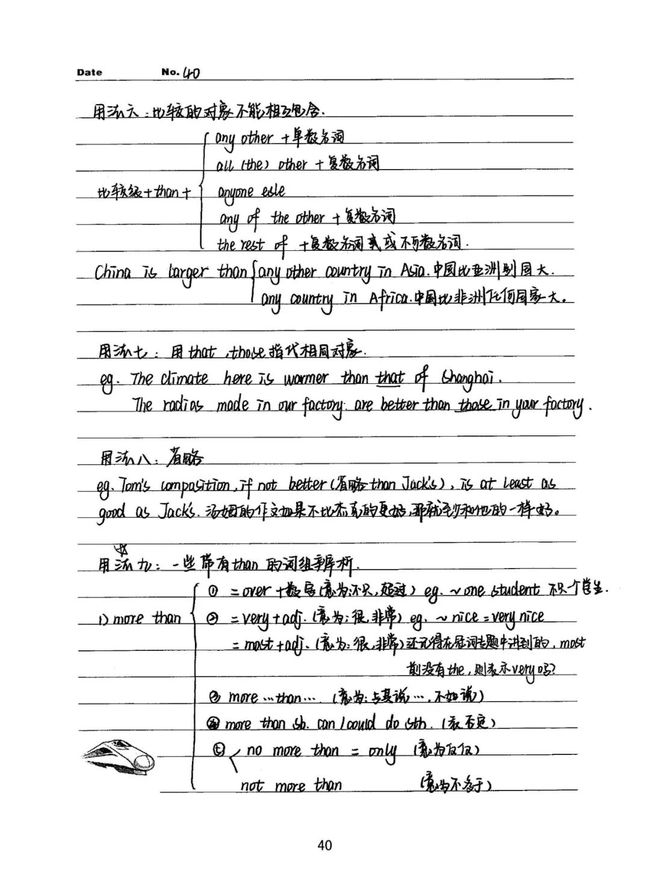 Date No. 40
用法六：比较的对象不能相互包含.
any other + 单数名词
all (the) other + 复数名词
比较级 + than + anyone esle
any of the other + 复数名词
the rest of + 复数名词或不可数名词.
China is larger than any other country in Asia. 中国比亚洲别国大.
any country in Africa. 中国比非洲任何国家大。
用法七：用 that, those 指代相同对象.
eg. The climate here is warmer than that of Shanghai.
The radios made in our factory are better than those in your factory.
用法八：省略
eg. Tom's composition, if not better (省略 than Jack's), is at least as
good as Jack's. 汤姆的作文如果不比杰克的更好,那就至少和他的一样好。
☆
用法九：一些带有than的词组辨析.
① = over + 数字 (意为:不只, 超过) eg. ~ one student 不只一个学生.
1) more than ② = very + adj. (意为: 很, 非常) eg. ~ nice = very nice
= most + adj. (意为: 很, 非常) 还记得在冠词专题中讲到的, most
前没有the, 则表示very吗?
③ more … than … (意为: 与其说 …, 不如说)
④ more than sb. can / could do sth. (表否定)
⑤ no more than = only (意为仅仅)
not more than (意为不多于)
40